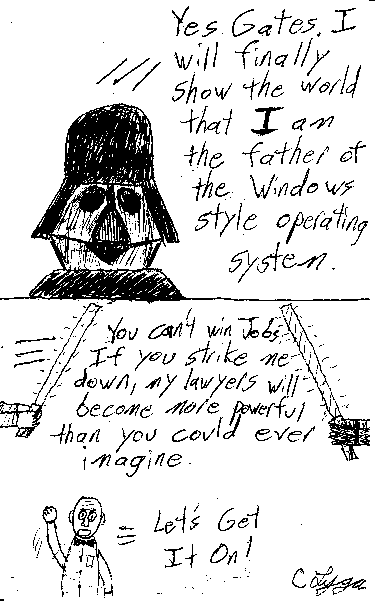 Yes Gates. I
will finally
show the world
that I am
the father of
the Windows
style operating
system.
You can't win Jobs
If you strike me
down, my lawyers will
become more powerful
than you could ever
imagine.
Let's Get
It On!